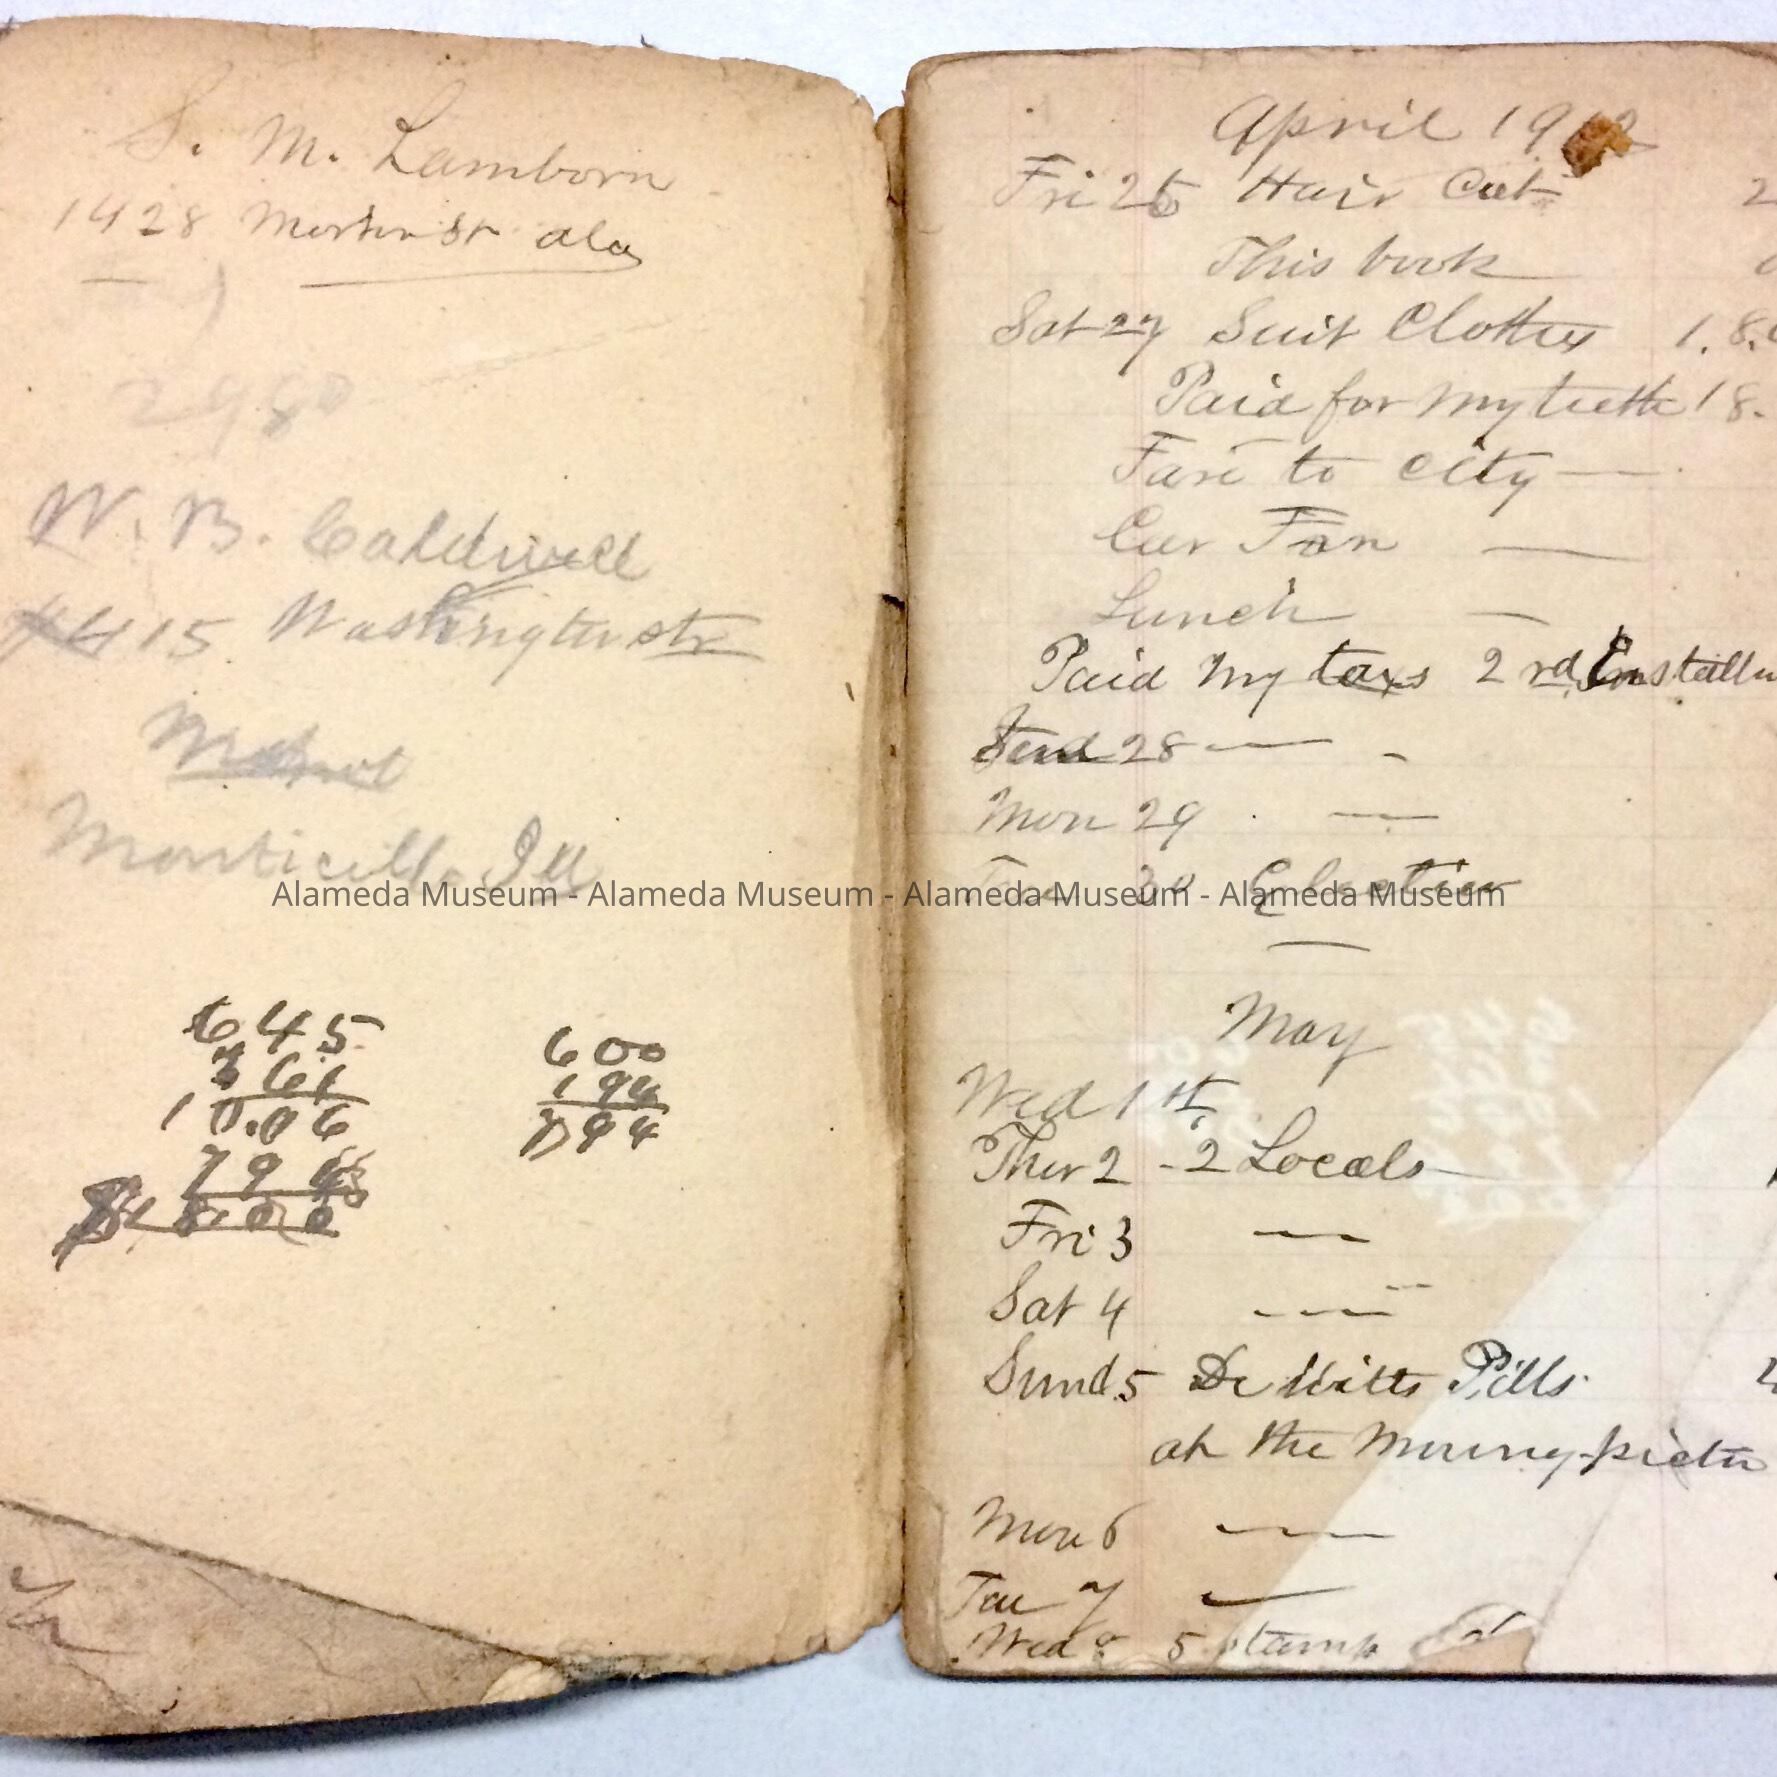 S. M. Lamborn
1428 Morton St Ala
2980
W. B. Caldwell
415 Washington str
Monticello Ill
645
361
10.06
794
1800
600
194
794
April 1912
Fri 26 Hair Cut 2
This book
Sat 27 Suit Clothes 1.8.0
Paid for My teeth 18.
Fare to City —
Car Fare —
Lunch —
Paid My taxes 2 rd Installm
Sund 28 — -
Mon 29 . —
Tue 30 Election
—
May
Wed 1 st
Ther 2 - 2 Locals
Fri 3 —
Sat 4 ---
Sund 5 De Witts Pills
at the Moving pictu
Mon 6 —
Tue 7 —
Wed 8 5 stamp
Alameda Museum - Alameda Museum - Alameda Museum - Alameda Museum